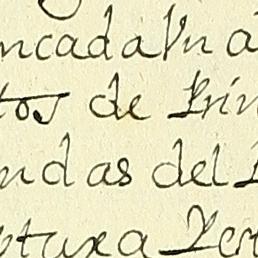 ncada Vn a
tos de Prin
ndas del
ptura Yer